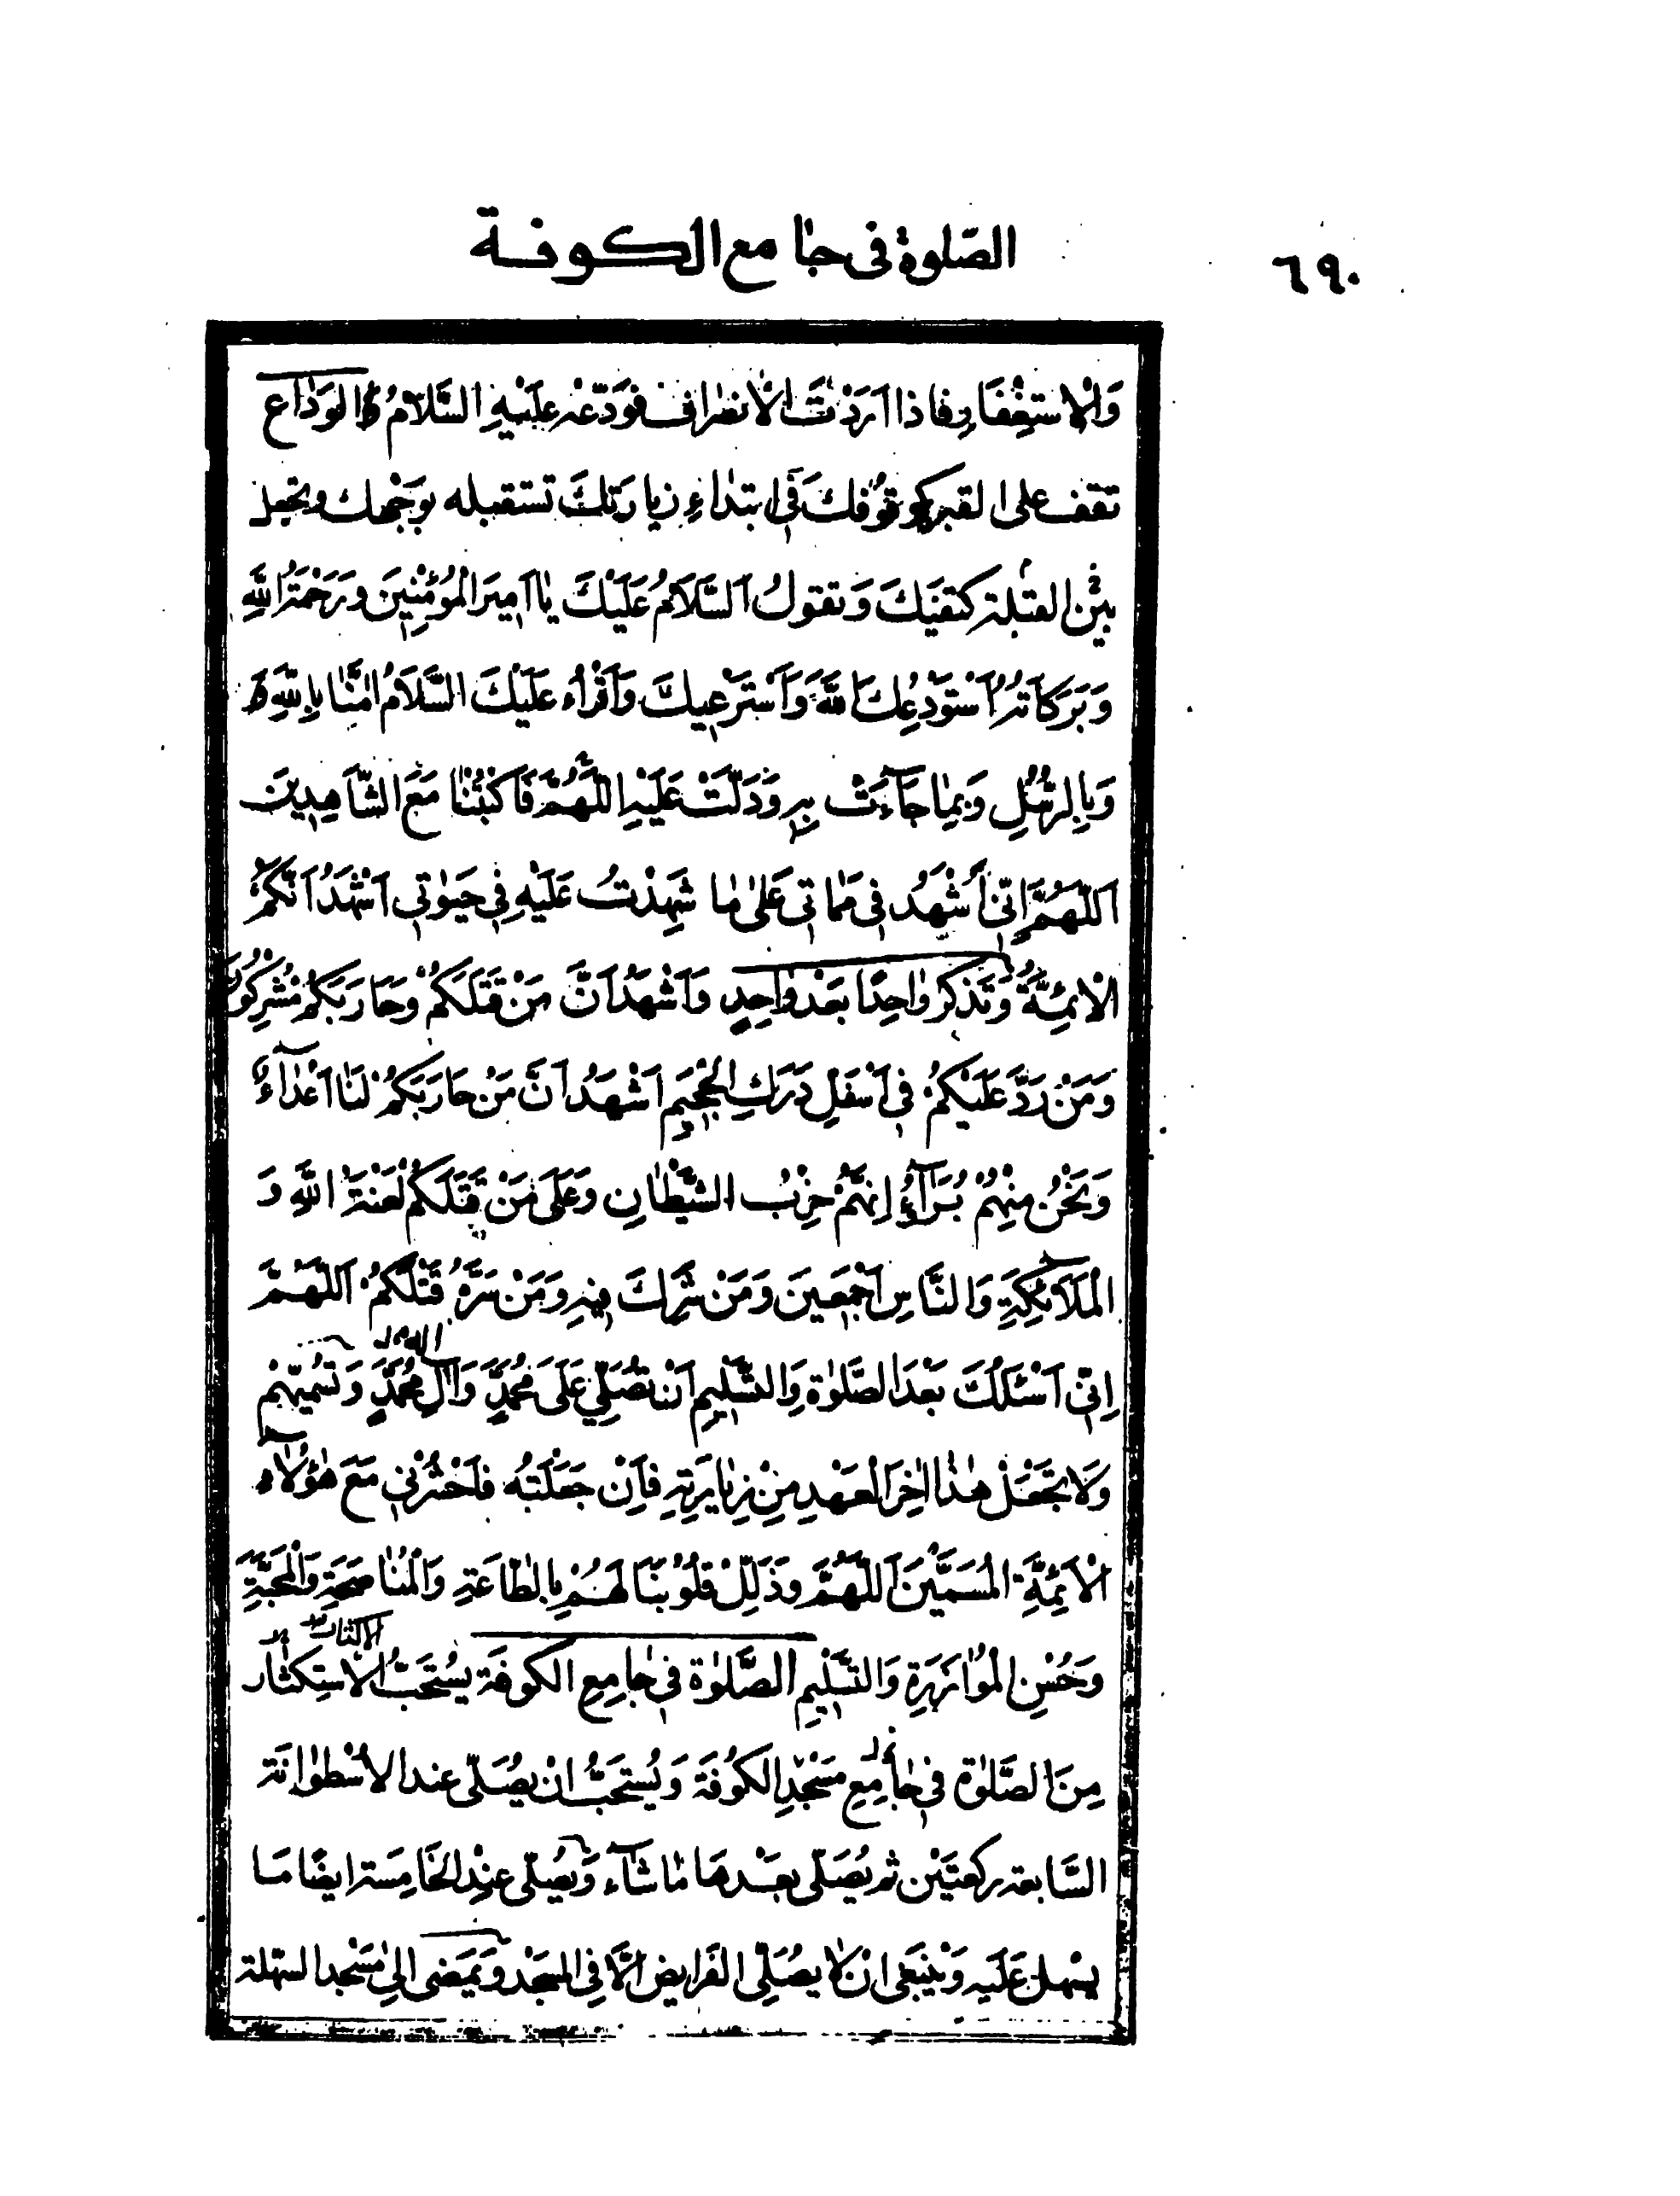 ٦٩٠
الصّلوة فى جٰامع الكوفة
وَالْاستغِفْارِ فاذا اَرَدْتَ الْانصْرٰاف فوَدّعْه عليَهِ السَّلامُ وَالوَدٰاع
تقف على القبر كوقوُفكَ فَى ابتدٰاءِ زيارَتكَ تستقبله بوَجْهك وتجعل
بيْن القبْلة كتفيَكَ وَتقولُ اَلسَّلامُ عَلَيْكَ يٰا اَميرَ الْمُؤْمِنْينَ وَرَحْمَةُ اللَّهِ
وَبَرَكٰاتُهُ اَسْتوَدْعِكَ اللَّهَ وَاَسْتَرْعيكَ وَاَقْرَأُ عليَكَ السَّلامُ اٰمَنّٰا بِاللّهِ وَ
وَبِالرسُّلِ وَبِمٰا جٰآءَتْ بِهِ وَدَلّتْ عَلَيْهِ اللَّهُمَّ فَاكْتبُنْٰا مَعَ الشّٰاهِدينَ
اَللّهُمَّ اِنّى اَشْهَدُ فى مَمٰاتى عَلىٰ مٰا شَهِدْتُ عَلَيْهِ فى حَيوٰتى اَشْهَدُ اَنّكُمُ
الْاَئِمَّةُ وَتَذكُر وٰاحِدًا بَعْدَ وٰاحِدٍ وَاَشْهَدُ اَنَّ مَنْ قَتَلَكُمْ وَحٰارَبَكُمْ مُشْرِكُونَ
وَمَنْ رَدَّ عَلَيْكُمْ فى اَسْفَلِ دَرَكِ الْجَحيمِ اَشْهَدُ اَنَّ مَنْ حٰارَبَكُمْ لَنٰا اَعْدٰآءٌ
وَنَحْنُ مِنْهُمْ بُرَآءُ اِنَهَّمُْ حِزْبُ الشَّيْطٰانِ وَعَلَى مَنْ قَتَلَكُمْ لَعْنَةُ اللَّهِ وَ
الْمَلآئِكَةِ وَالنّٰاسِ اَجْمَعينَ وَمَنْ شَرِكَ فيهِ وَمَنْ سَرَّهُ قَتْلَكُمْ اَللّٰهُمَّ
اِنّى اَسْئَلُكَ بَعْدَ الصَّلوٰةِ وَالتسَّليمِ اَنْ تصَُلّىَ عَلىَ مُحَمَّدٍ وَاٰلِ مُحَمَّدٍ وَتسُمّيَهمْ
وَلَا تجَعْلَْ هٰذٰا اٰخِرَ الْعَهْدِ مِنْ زِيٰارَتِهِ فاَِنْ جَعَلْتَهُ فَاحْشُرْنى مَعَ هٰؤُلآءِ
الْاَئِمَّةِ المُسَمَّيْنَ اَللّٰهُمَّ وَذَلِّلْ قلُوُبنَٰا لهَُمْ بِالطّٰاعَةِ وَالْمُنٰاصَحَةِ وَالْمَحَبَّةِ
وَحُسْنِ الْمُؤٰازَرَةِ وَالتسَّليمِ الصَّلوٰة فى جٰامِعِ الكوفَة يسُتَحَبُّ الْاسِتكثٰار
مِنَ الصَّلوٰة فى جٰامِعِ مَسْجْدِ الكوُفَة وَيُستحَبُّ انْ يصُلّى عند الاُسْطوٰانَة
السَّابعة ركعتَيْن ثم يُصَلّى بعَْدهَا مٰا شٰآءَ وَيصُلّى عنِدْ الخٰامِسَة ايضًا مَا
يسْهل عَلَيه وَينْبَغى انْ لٰا يصُلّىِ الفَرايض الّٰا فِى المسجْد وَيمَضى اِلىٰ مَسْجد السَّهلة